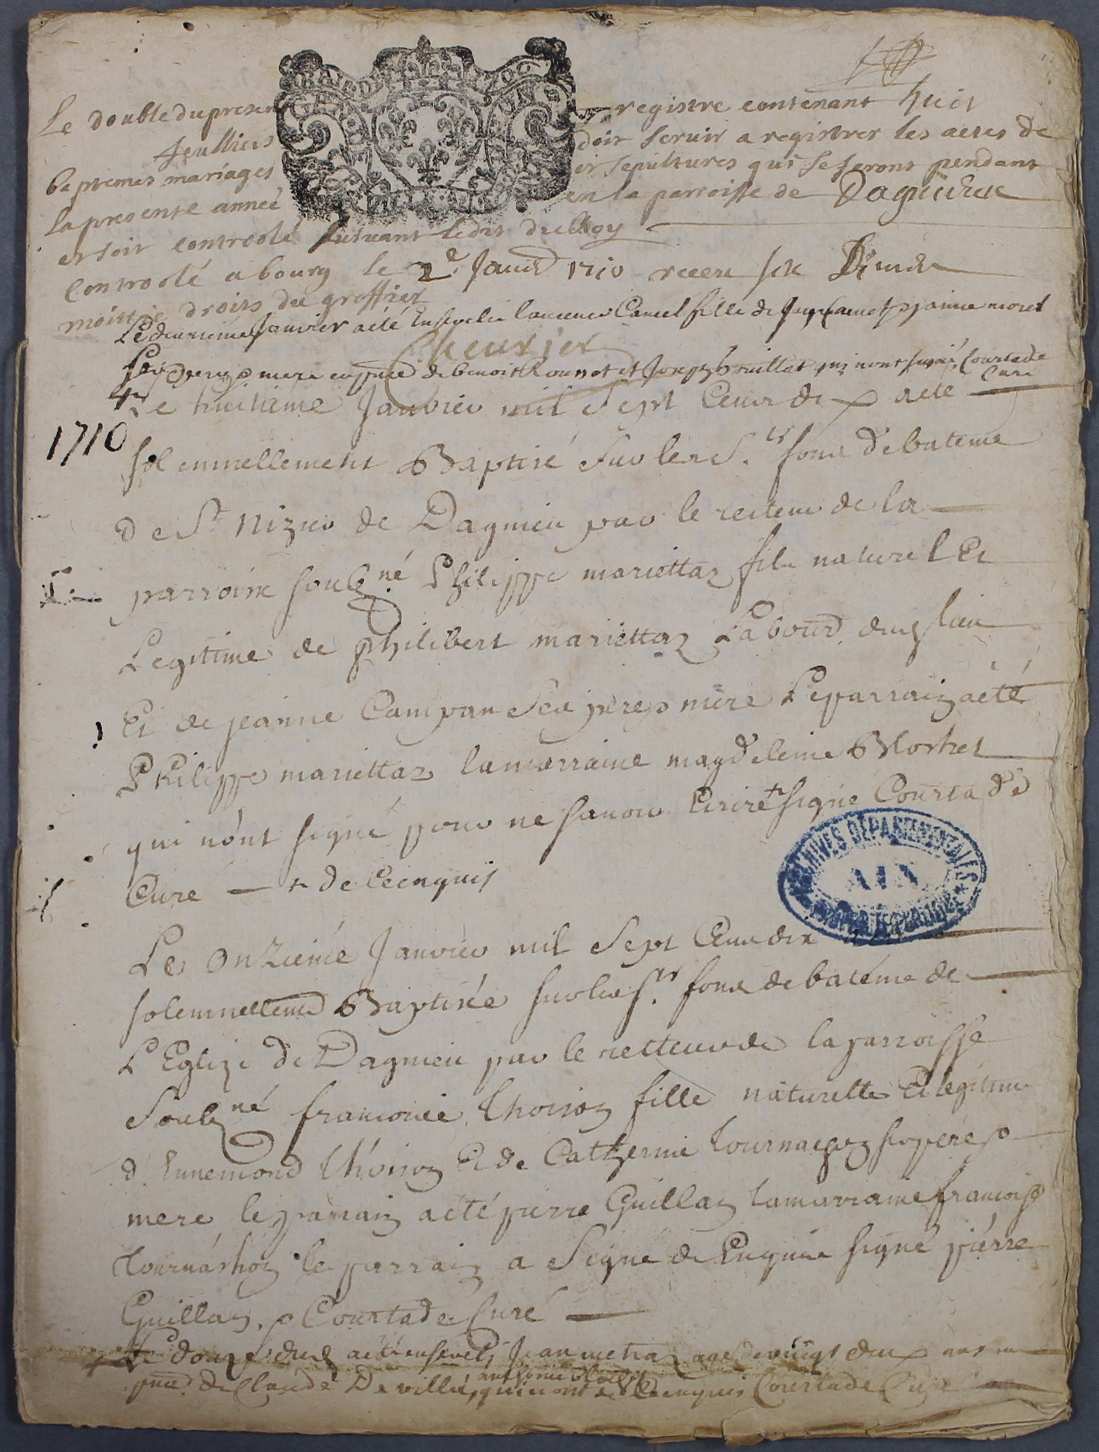 Le double du present registre contenant huit
feulliets doit servir a registrer les actes de
baptemes mariages et sepultures qui se feront pendant
la presente année en la parroisse de Dagnieux
et soit controolé suivant ledit du Roy
Controolé a bourg le 2e Janvr 1710 receu six
moitié droits du greffier
Le deuxieme Janvier a été Ensevelie laurence Camet fille de Camet & jeanne moret
Cheurier
ses pere & mere en presence de benoit et Joseph qui n'ont signé Courtade
Curé
Le huitieme Janvier mil Sept Cens dix a été
1710
solemnellement Baptisé sur les Sts fons de bateme
De St Nizier de Dagnieu par le recteur de la
parroisse sousné Philippe mariettaz fils naturel Et
Legitime de philibert mariettaz Labour. dud lieu
Et de jeanne Campan Ses pere & mere Le parrain a été
Philippe mariettaz la marraine magdeleine Blonhet
qui n'ont signé pour ne savoir Ecrire signé Courtade
Curé de ce enquis
Le Onzieme Janvier mil Sept Cens dix
solemnellemt Baptisée sur les Sts fons de bateme de
L'Eglize de Dagnieu par le recteur de la parroisse
Sousné francoise Thoison fille naturelle Et legitime
d'Ennemond Thoison Et de Catherine tournachon ses pere &
mere le parrain a été pierre Guillan la marraine francoise
tournachon le parrain a Signé de Enquis signé pierre
Guillan, & Courtade Curé
Le douze dud a été enseveli Jean metra agé de vingt deux ans en
antoine
pnce de Claude De ville, qui n'ont s de ce enquis Courtade Curé
ARCHIVES DÉPARTEMENTALES
AIN